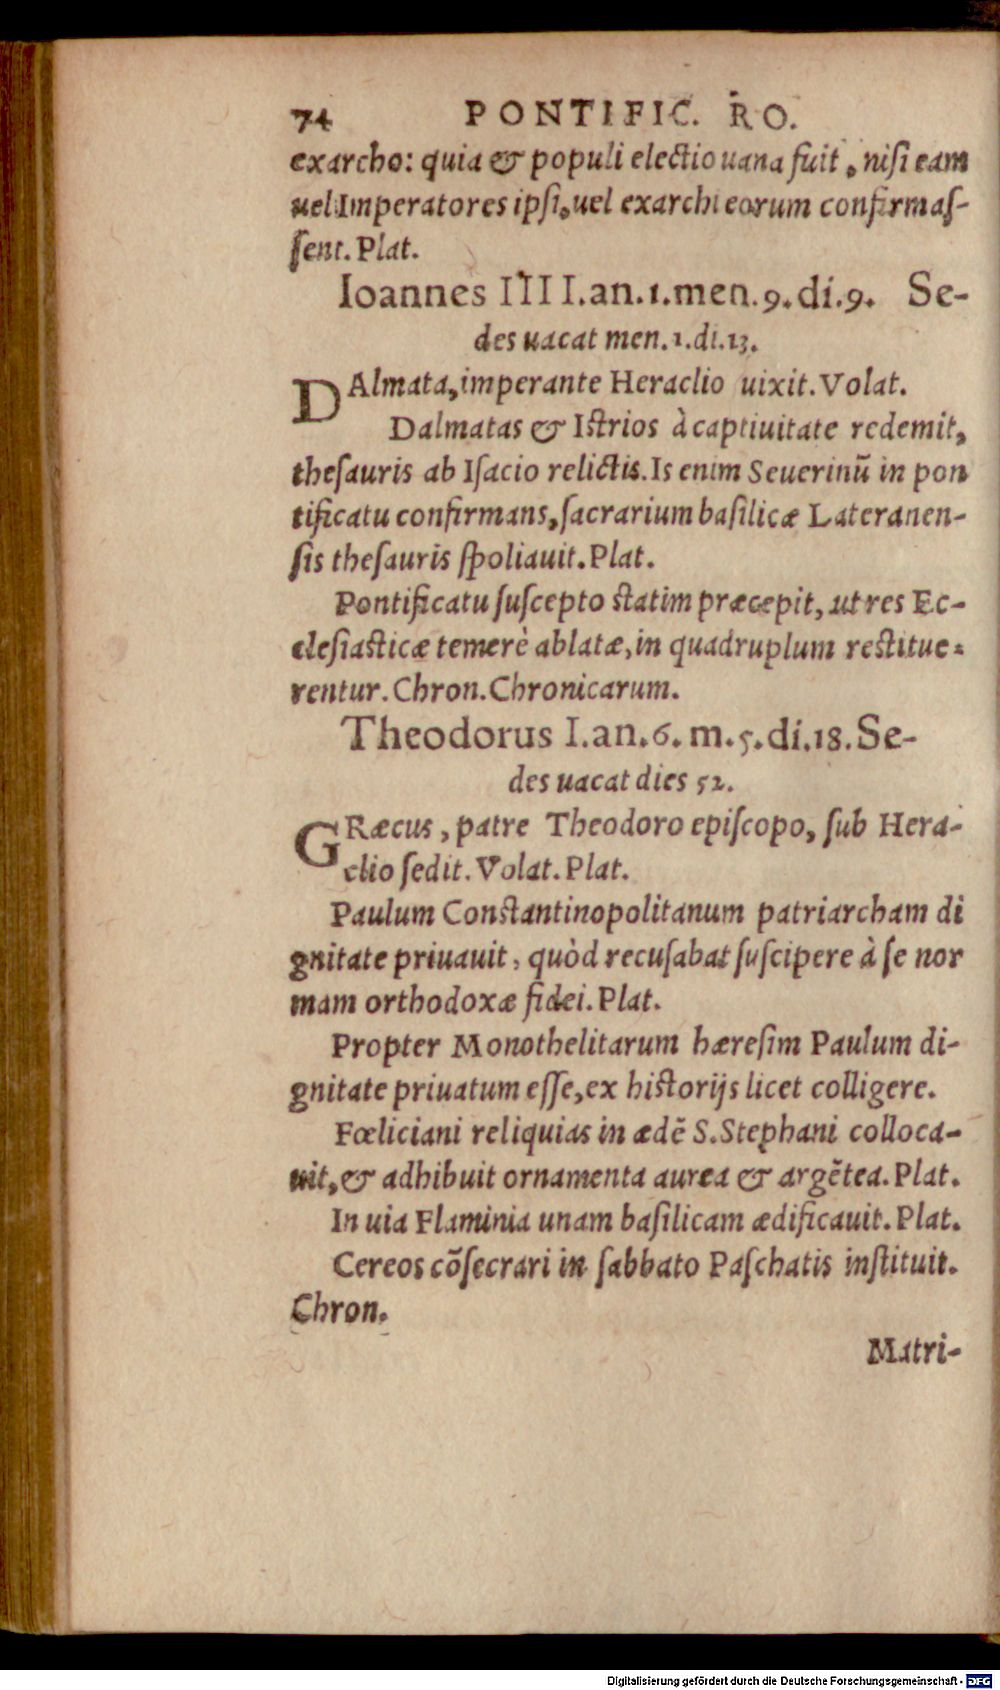 74 PONTIFIC. RO.
exarcho: quia & populi electio uana fuit, nisi eam
uel Imperatores ipsi, uel exarchi eorum confirmas-
sent. Plat.
Ioannes IIII. an. 1. men. 9. di. 9. Se-
des uacat men. 1. di. 13.
DAlmata, imperante Heraclio uixit. Volat.
Dalmatas & Istrios à captiuitate redemit,
thesauris ab Isacio relictis. Is enim Seuerinū in pon
tificatu confirmans, sacrarium basilicæ Lateranen-
sis thesauris spoliauit. Plat.
Pontificatu suscepto statim præcepit, ut res Ec-
clesiasticæ temerè ablatæ, in quadruplum restitue-
rentur. Chron. Chronicarum.
Theodorus I. an. 6. m. 5. di. 18. Se-
des uacat dies 52.
GRæcus, patre Theodoro episcopo, sub Hera-
clio sedit. Volat. Plat.
Paulum Constantinopolitanum patriarcham di
gnitate priuauit, quòd recusabat suscipere à se nor
mam orthodoxæ fidei. Plat.
Propter Monothelitarum hæresim Paulum di-
gnitate priuatum esse, ex historijs licet colligere.
Fœliciani reliquias in ædē S. Stephani colloca-
uit, & adhibuit ornamenta aurea & argētea. Plat.
In uia Flaminia unam basilicam ædificauit. Plat.
Cereos cōsecrari in sabbato Paschatis instituit.
Chron.
Matri-
Digitalisierung gefördert durch die Deutsche Forschungsgemeinschaft - DFG